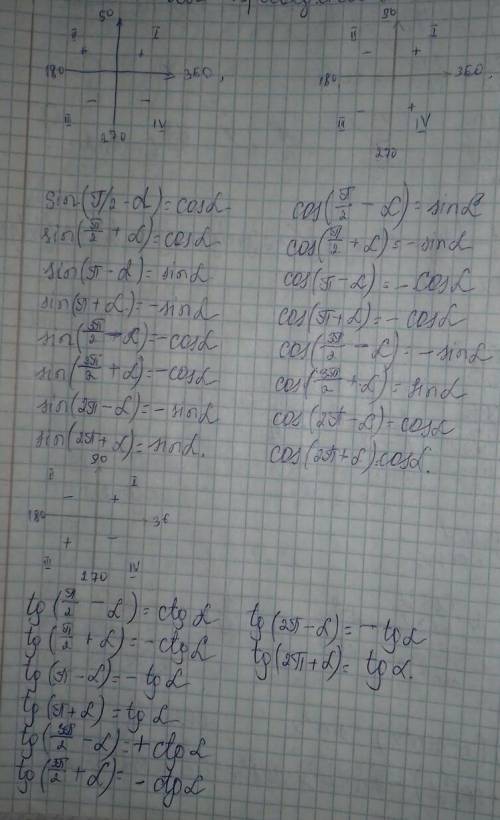 90
II I
+ +
180 360,
− −
III IV
270
90
II I
− +
180 360,
− +
III IV
270
sin(π/2 - α) = cosα
sin(π/2 + α) = cosα
sin(π - α) = sinα
sin(π + α) = -sinα
sin(3π/2 - α) = -cosα
sin(3π/2 + α) = -cosα
sin(2π - α) = -sinα
sin(2π + α) = sinα.
cos(π/2 - α) = sinα
cos(π/2 + α) = -sinα
cos(π - α) = -cosα
cos(π + α) = -cosα
cos(3π/2 - α) = -sinα
cos(3π/2 + α) = sinα
cos(2π - α) = cosα
cos(2π + α) cosα.
90
II I
− +
180 36
+ −
III IV
270
tg(π/2 - α) = ctgα
tg(π/2 + α) = -ctgα
tg(π - α) = -tgα
tg(π + α) = tgα
tg(3π/2 - α) = +ctgα
tg(3π/2 + α) = -ctgα
tg(2π - α) = -tgα
tg(2π + α) = tgα.